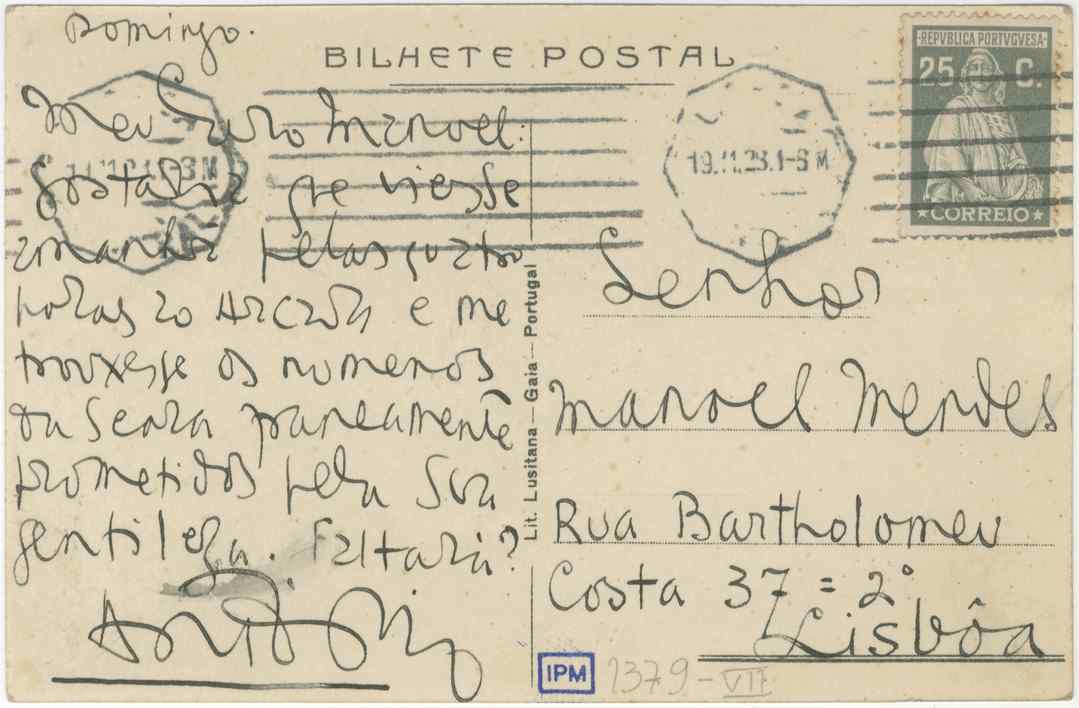 Domingo.
BILHETE POSTAL
REPVBLICA PORTVGVESA
25 C.
CORREIO
19.11.23.1-S M
Meu caro Manoel:
Gostaria que viesse
amanhã pelas quatro
horas ao Arcada e me
trouxesse os numeros
da Seara
prometidos pela sua
gentileza. Faltará?
Lit. Lusitana — Gaia — Portugal
Senhor
Manoel Mendes
Rua Bartholomeu
Costa 37 = 2°
Lisbôa
IPM 2379-VII